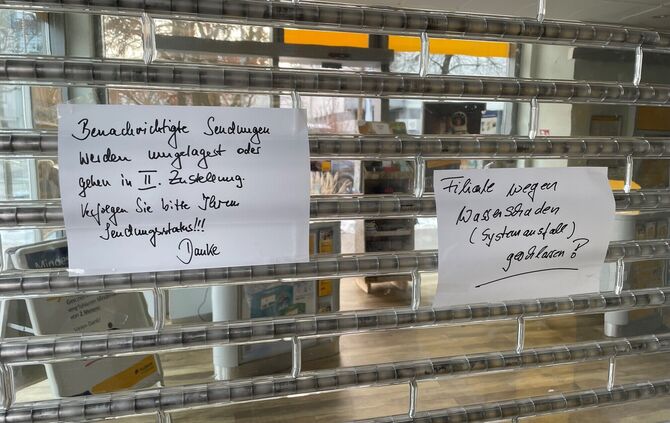 Benachrichtigte Sendungen
werden umgelagert oder
gehen in II. Zustellung.
Verfolgen Sie bitte Ihren
Sendungsstatus!!!
Danke
Filiale wegen
Wasserschaden
(Systemausfall)
geschlossen!